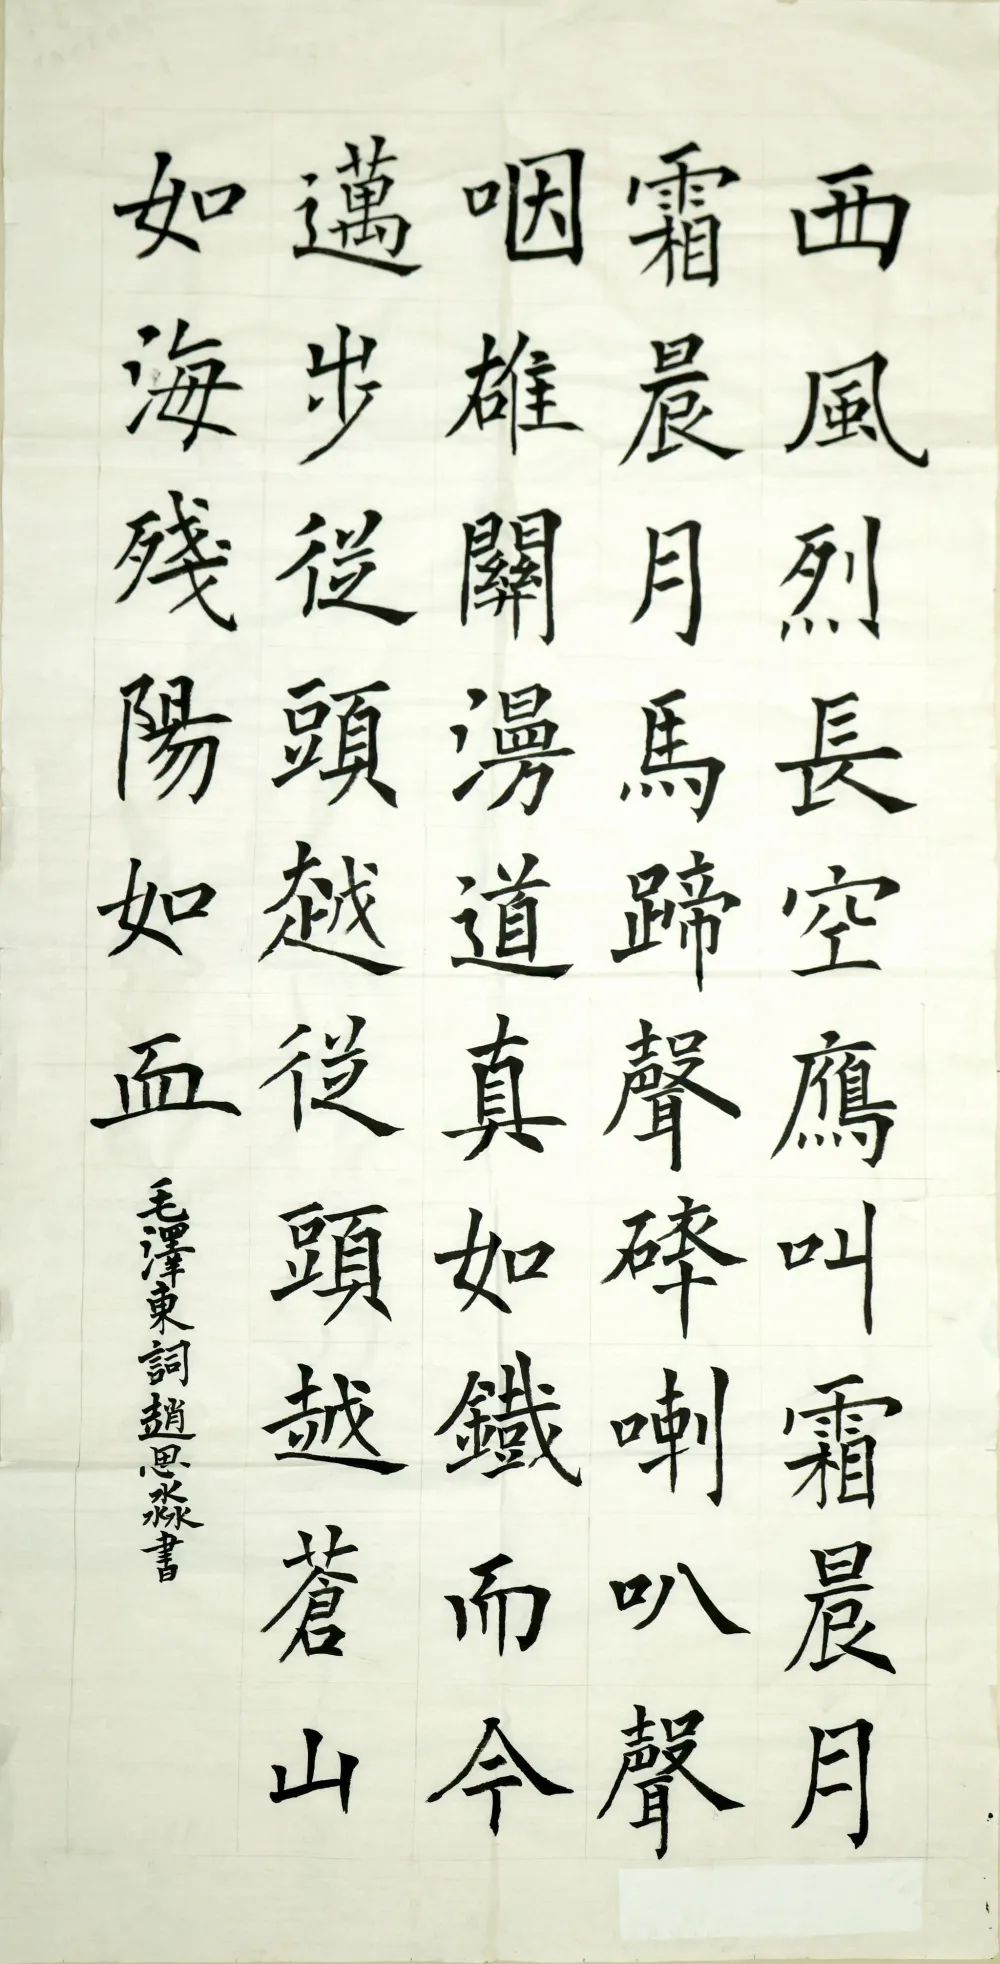 西風烈長空鴈叫霜晨月
霜晨月馬蹄聲碎喇叭聲
咽雄關漫道真如鐵而今
邁步從頭越從頭越蒼山
如海殘陽如血
毛澤東詞趙思淼書